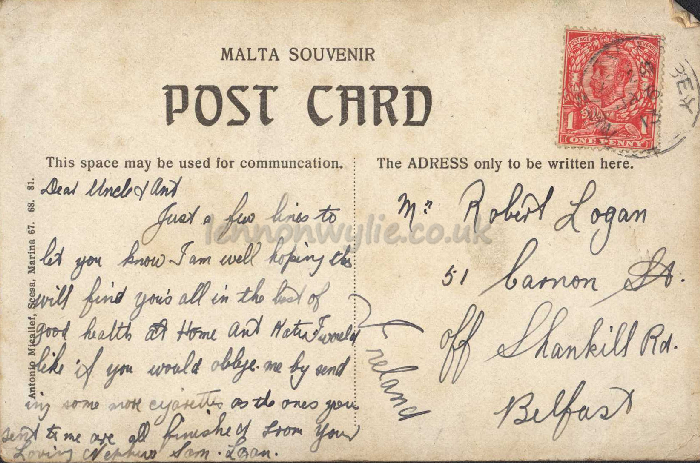 MALTA SOUVENIR
POST CARD
This space may be used for communcation.
The ADRESS only to be written here.
Antonio Micallef, Scesa, Marina 67. 68. 81.
Dear Uncle & Ant
Just a few lines to
let you know I am well hoping this
will find yous all in the best of
good health at Home Ant I would
like if you would oblige me by send
ing some more cigarettes as the ones you
send to me are all finished from Your
Loving Nephew Sam. Logan.
Mr Robert Logan
51 Carnon St.
off Shankill Rd.
Belfast
Ireland
1 1
ONE PENNY
lennonwylie.co.uk